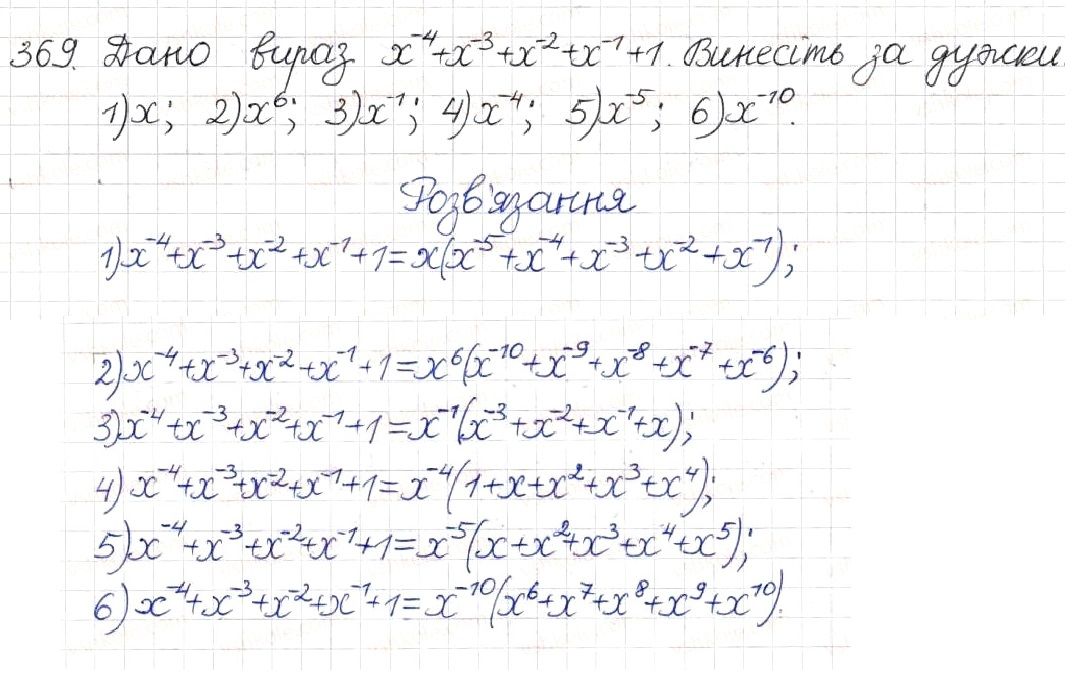 369. Дано вираз x⁻⁴+x⁻³+x⁻²+x⁻¹+1. Винесіть за дужки
1) x; 2) x⁶; 3) x⁻¹; 4) x⁻⁴; 5) x⁻⁵; 6) x⁻¹⁰.
Розв'язання
1) x⁻⁴+x⁻³+x⁻²+x⁻¹+1=x(x⁻⁵+x⁻⁴+x⁻³+x⁻²+x⁻¹);
2) x⁻⁴+x⁻³+x⁻²+x⁻¹+1=x⁶(x⁻¹⁰+x⁻⁹+x⁻⁸+x⁻⁷+x⁻⁶);
3) x⁻⁴+x⁻³+x⁻²+x⁻¹+1=x⁻¹(x⁻³+x⁻²+x⁻¹+x);
4) x⁻⁴+x⁻³+x⁻²+x⁻¹+1=x⁻⁴(1+x+x²+x³+x⁴);
5) x⁻⁴+x⁻³+x⁻²+x⁻¹+1=x⁻⁵(x+x²+x³+x⁴+x⁵);
6) x⁻⁴+x⁻³+x⁻²+x⁻¹+1=x⁻¹⁰(x⁶+x⁷+x⁸+x⁹+x¹⁰).